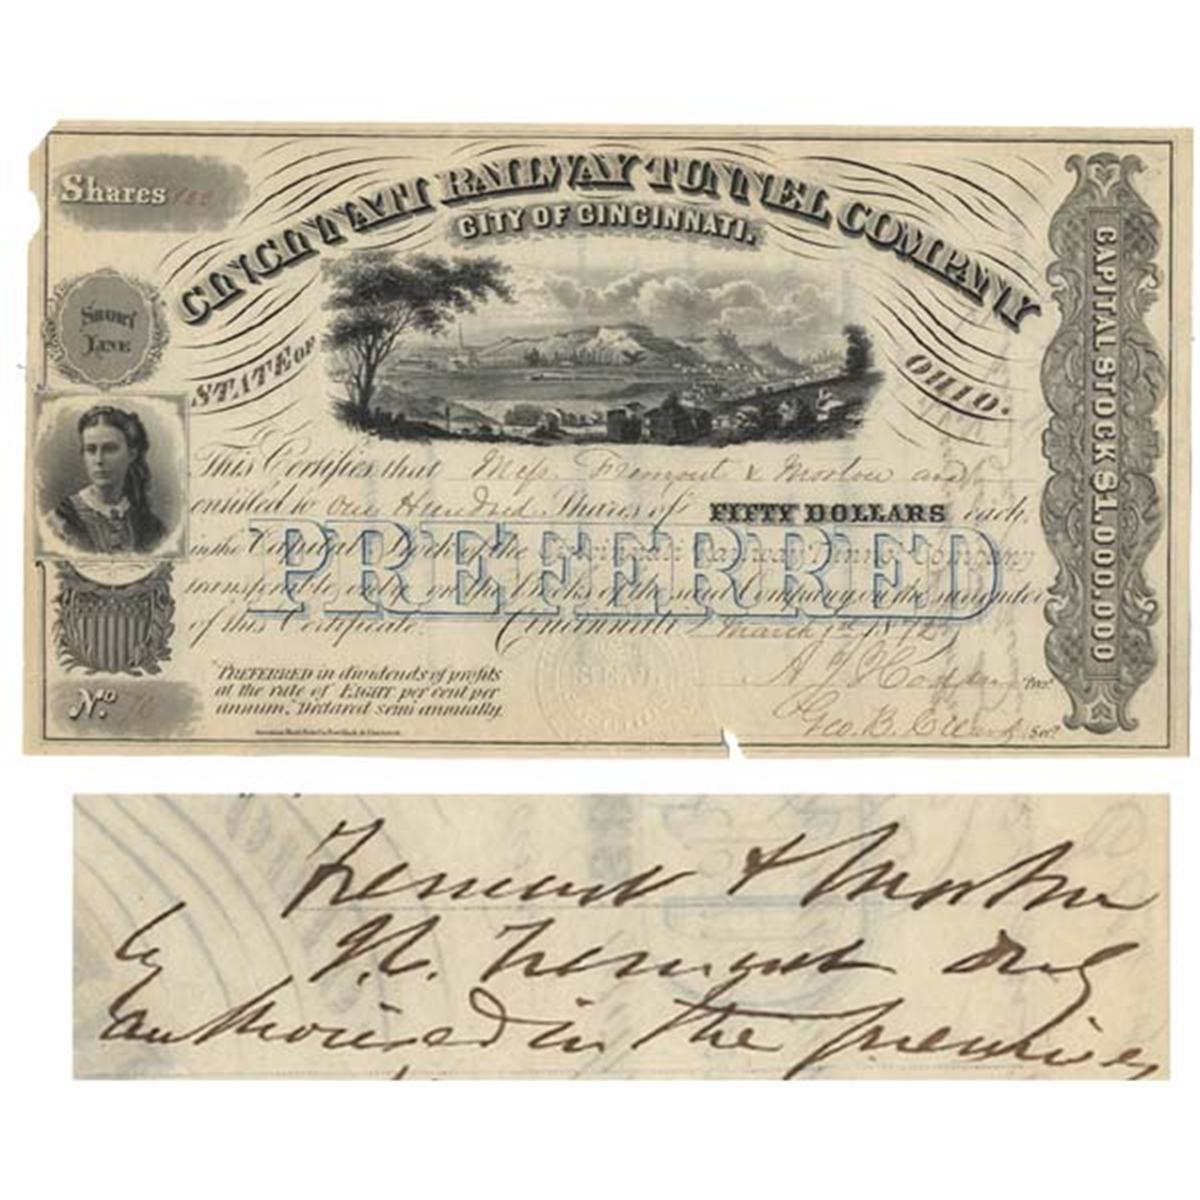 Shares 100
CINCINNATI RAILWAY TUNNEL COMPANY
CITY OF CINCINNATI.
STATE OF OHIO.
SHORT
LINE
CAPITAL STOCK $1,000,000
This Certifies that Mess. Fremont & Morton are
entitled to One Hundred Shares of FIFTY DOLLARS each
in the Capital Stock of the Cincinnati Railway Tunnel Company
transferable only on the books of the said Company on the surrender
of this Certificate. Cincinnati March 1st 1872
PREFERRED
"PREFERRED in dividends of profits
at the rate of EIGHT per cent per
annum," Declared semi-annually.
SEAL
Prest.
Geo. B. Secy.
No. 70
American Bank Note Co. New York & Cincinnati.
Fremont & Morton
by J. C. Fremont duly
authorised in the premises